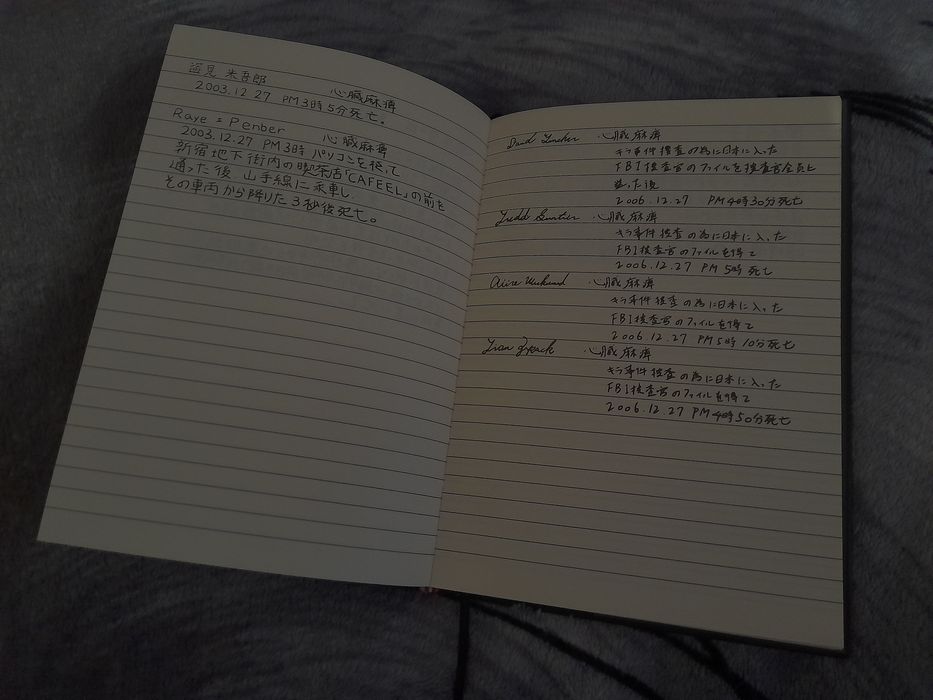 米吾郎
心臓麻痺
2003.12.27 PM3時5分死亡。
Raye = Penber 心臓麻痺
2003.12.27 PM3時 パソコンを持って
新宿地下街内の喫茶店「CAFEEL」の前を
通った後 山手線に乗車し、
その車両から降りた3秒後死亡。
心臓麻痺
キラ事件捜査の為に日本に入った
FBI捜査官のファイルを捜査官全員に
後
2006.12.27 PM4時30分死亡
心臓麻痺
キラ事件捜査の為に日本に入った
FBI捜査官のファイルを得て
2006.12.27 PM5時死亡
心臓麻痺
キラ事件捜査の為に日本に入った
FBI捜査官のファイルを得て
2006.12.27 PM5時10分死亡
心臓麻痺
キラ事件捜査の為に日本に入った
FBI捜査官のファイルを得て
2006.12.27 PM4時50分死亡